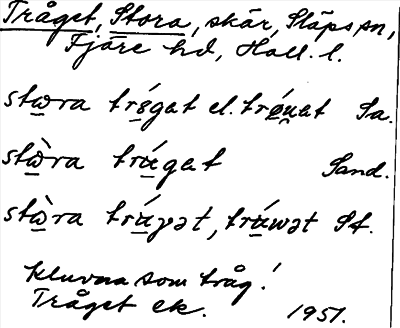 Tråget, Stora, skär, Släps sn,
Fjäre hd, Hall. l.
stω̱ra tró̱gat el. tró̱u̯at Sa.
stὼ̱ra trú̱gat Sand.
stὼ̱ra trú̱γət, trú̱wət St.
kluvna som tråg!
Tråget ek. 1951.